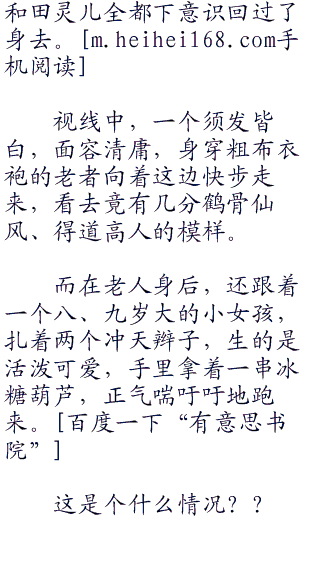 和田灵儿全都下意识回过了
身去。[m.heihei168.com手
机阅读]
视线中，一个须发皆
白，面容清庸，身穿粗布衣
袍的老者向着这边快步走
来，看去竟有几分鹤骨仙
风、得道高人的模样。
而在老人身后，还跟着
一个八、九岁大的小女孩，
扎着两个冲天辫子，生的是
活泼可爱，手里拿着一串冰
糖葫芦，正气喘吁吁地跑
来。[百度一下“有意思书
院”]
这是个什么情况？？